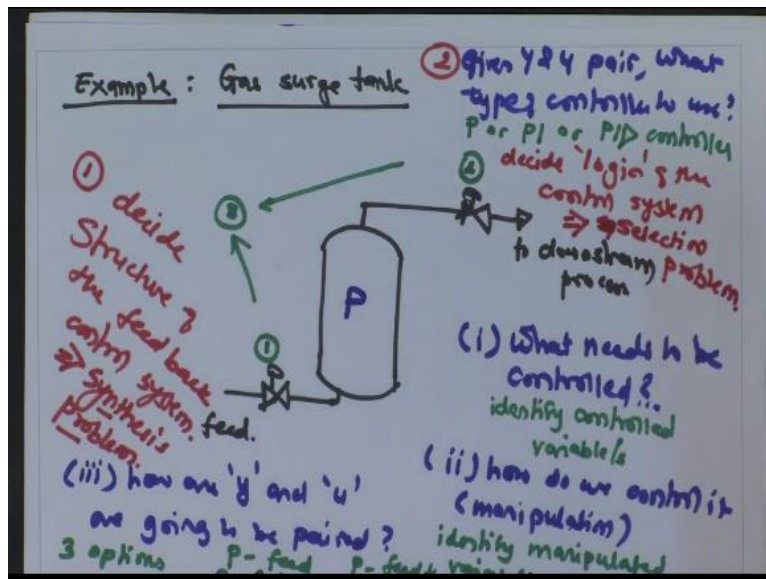 Example : Gas surge tank
② Given y & u pair, what
type of controller to use?
P or PI or PID controller
decide 'logic' of the
control system
⇒ selection
problem.
① decide
structure of
the feedback
control system.
⇒ synthesis
problem.
③
②
①
P
to downstream
process
feed.
(i) What needs to be
controlled?
identify controlled
variable/s
(ii) how do we control it
(manipulation)
identify manipulated
(iii) how are 'y' and 'u'
are going to be paired?
3 options P- feed P- feed